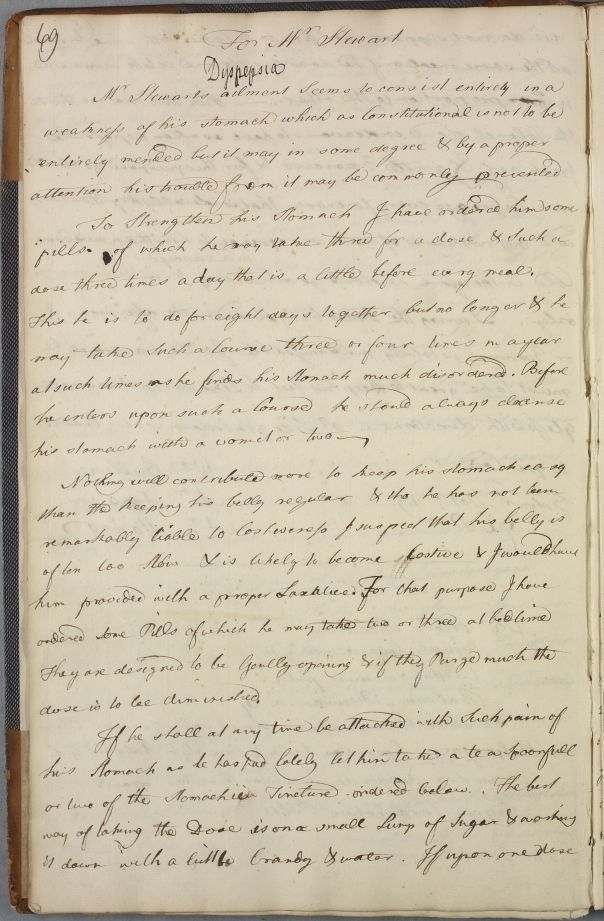 69
For Mr Stewart
Dyspepsia
Mr Stewarts ailment seems to consist entirely in a
weakness of his stomach which as Constitutional is not to be
entirely mended but it may in some degree & by a proper
attention his trouble from it may be commonly prevented
To Strengthen his Stomach I have ordered him some
pills of which he may take three for a dose & Such a
dose three times a day that is a little before every meal.
This he is to do for eight days together but no longer & he
may take Such a Course three or four times in a year
at such times as he finds his Stomach much disordered. Before
he enters upon such a Course he should always cleanse
his stomach with a vomit or two
Nothing will contribute more to keep his stomach easy
than the keeping his belly regular & tho he has not been
remarkably liable to Costiveness I suspect that his belly is
often too slow & is likely to become Costive & I would have
him provided with a proper Laxative. For that purpose I have
ordered some Pills of which he may take two or three at bedtime
They are designed to be Gently opening & if they Purge much the
dose is to be diminished.
If he shall at any time be attacked with Such pain of
his Stomach as he has had lately let him take a tea spoonfull
or two of the Stomachic Tincture ordered below. The best
way of taking the Dose is on a small Lump of Sugar & washing
it down with a little brandy & water. If upon one dose